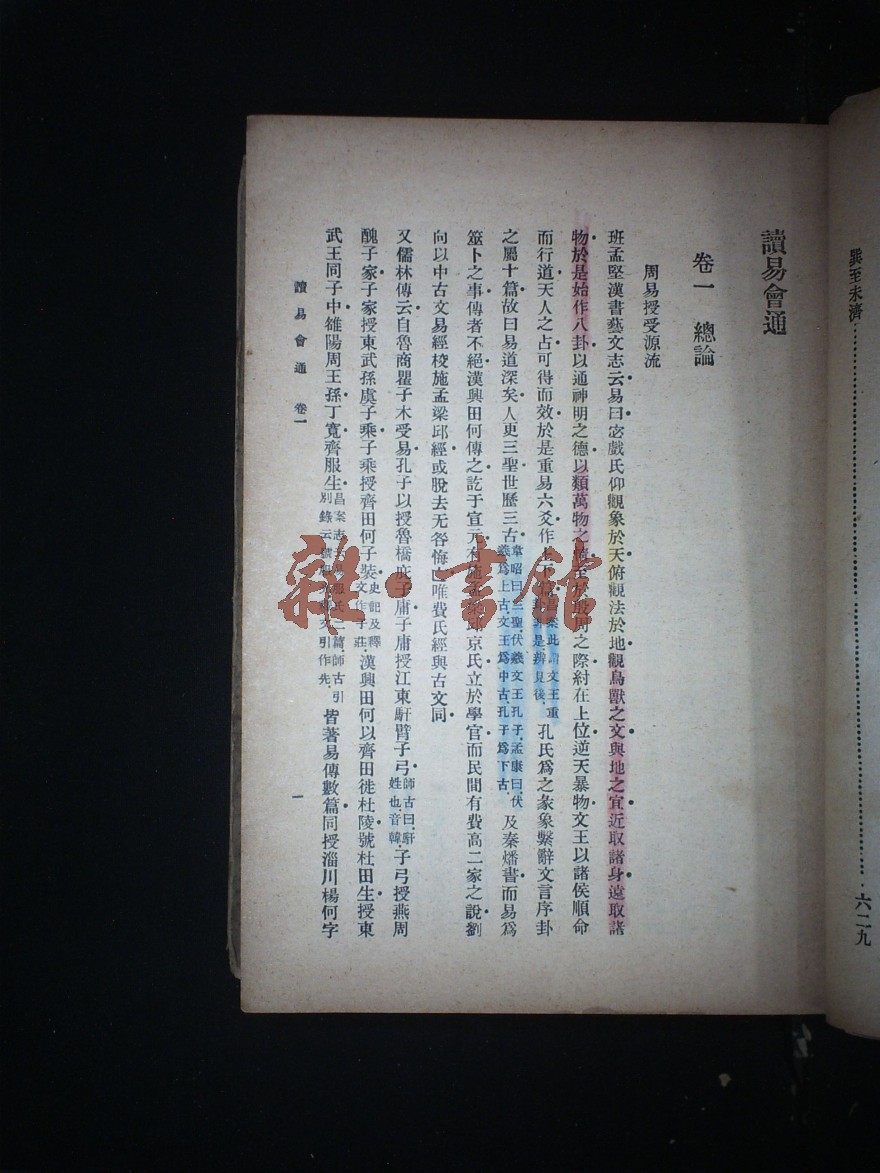 巽至未濟……………………六二九
讀易會通
卷一 總論
周易授受源流
班孟堅漢書藝文志云易曰宓戲氏仰觀象於天俯觀法於地觀鳥獸之文與地之宜近取諸身遠取諸
物於是始作八卦以通神明之德以類萬物之情至於殷周之際紂在上位逆天暴物文王以諸侯順命
而行道天人之占可得而效於是重易六爻作上下篇昌案此謂文王重卦非是辨見後孔氏爲之彖象繫辭文言序卦
之屬十篇故曰易道深矣人更三聖世歷三古韋昭曰三聖伏羲文王孔子孟康曰伏羲爲上古文王爲中古孔子爲下古及秦燔書而易爲
筮卜之事傳者不絕漢興田何傳之訖于宣元有施孟梁邱京氏立於學官而民間有費高二家之說劉
向以中古文易經校施孟梁邱經或脫去无咎悔亡唯費氏經與古文同
又儒林傳云自魯商瞿子木受易孔子以授魯橋庇子庸子庸授江東馯臂子弓師古曰馯姓也音韓子弓授燕周
醜子家子家授東武孫虞子乘子乘授齊田何子裝史記及釋文作子莊漢興田何以齊田徙杜陵號杜田生授東
武王同子中雒陽周王孫丁寬齊服生昌案志云易服氏二篇師古引別錄云服皆著易傳數篇同授淄川楊何字
讀易會通 卷一
一
雜·書館